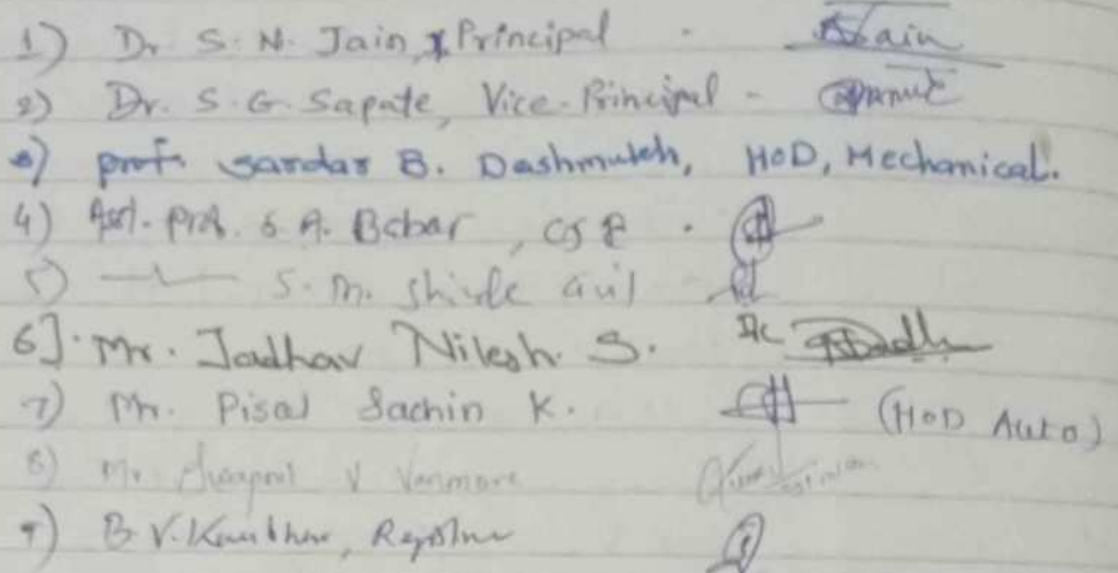 1) Dr S. N. Jain, Principal - Jain
2) Dr. S. G. Sapate, Vice-Principal -
3) prof. sardar B. Dashmukh, HOD, Mechanical.
4) Asst. prof. S. A. Babar, CSE -
5) S. M. Shinde Civil
6] Mr. Jadhav Nilesh. S. I/C
7) Mr. Pisal Sachin K. (HOD Auto)
8) Mr V Vanmore
9) B. V. Registrar